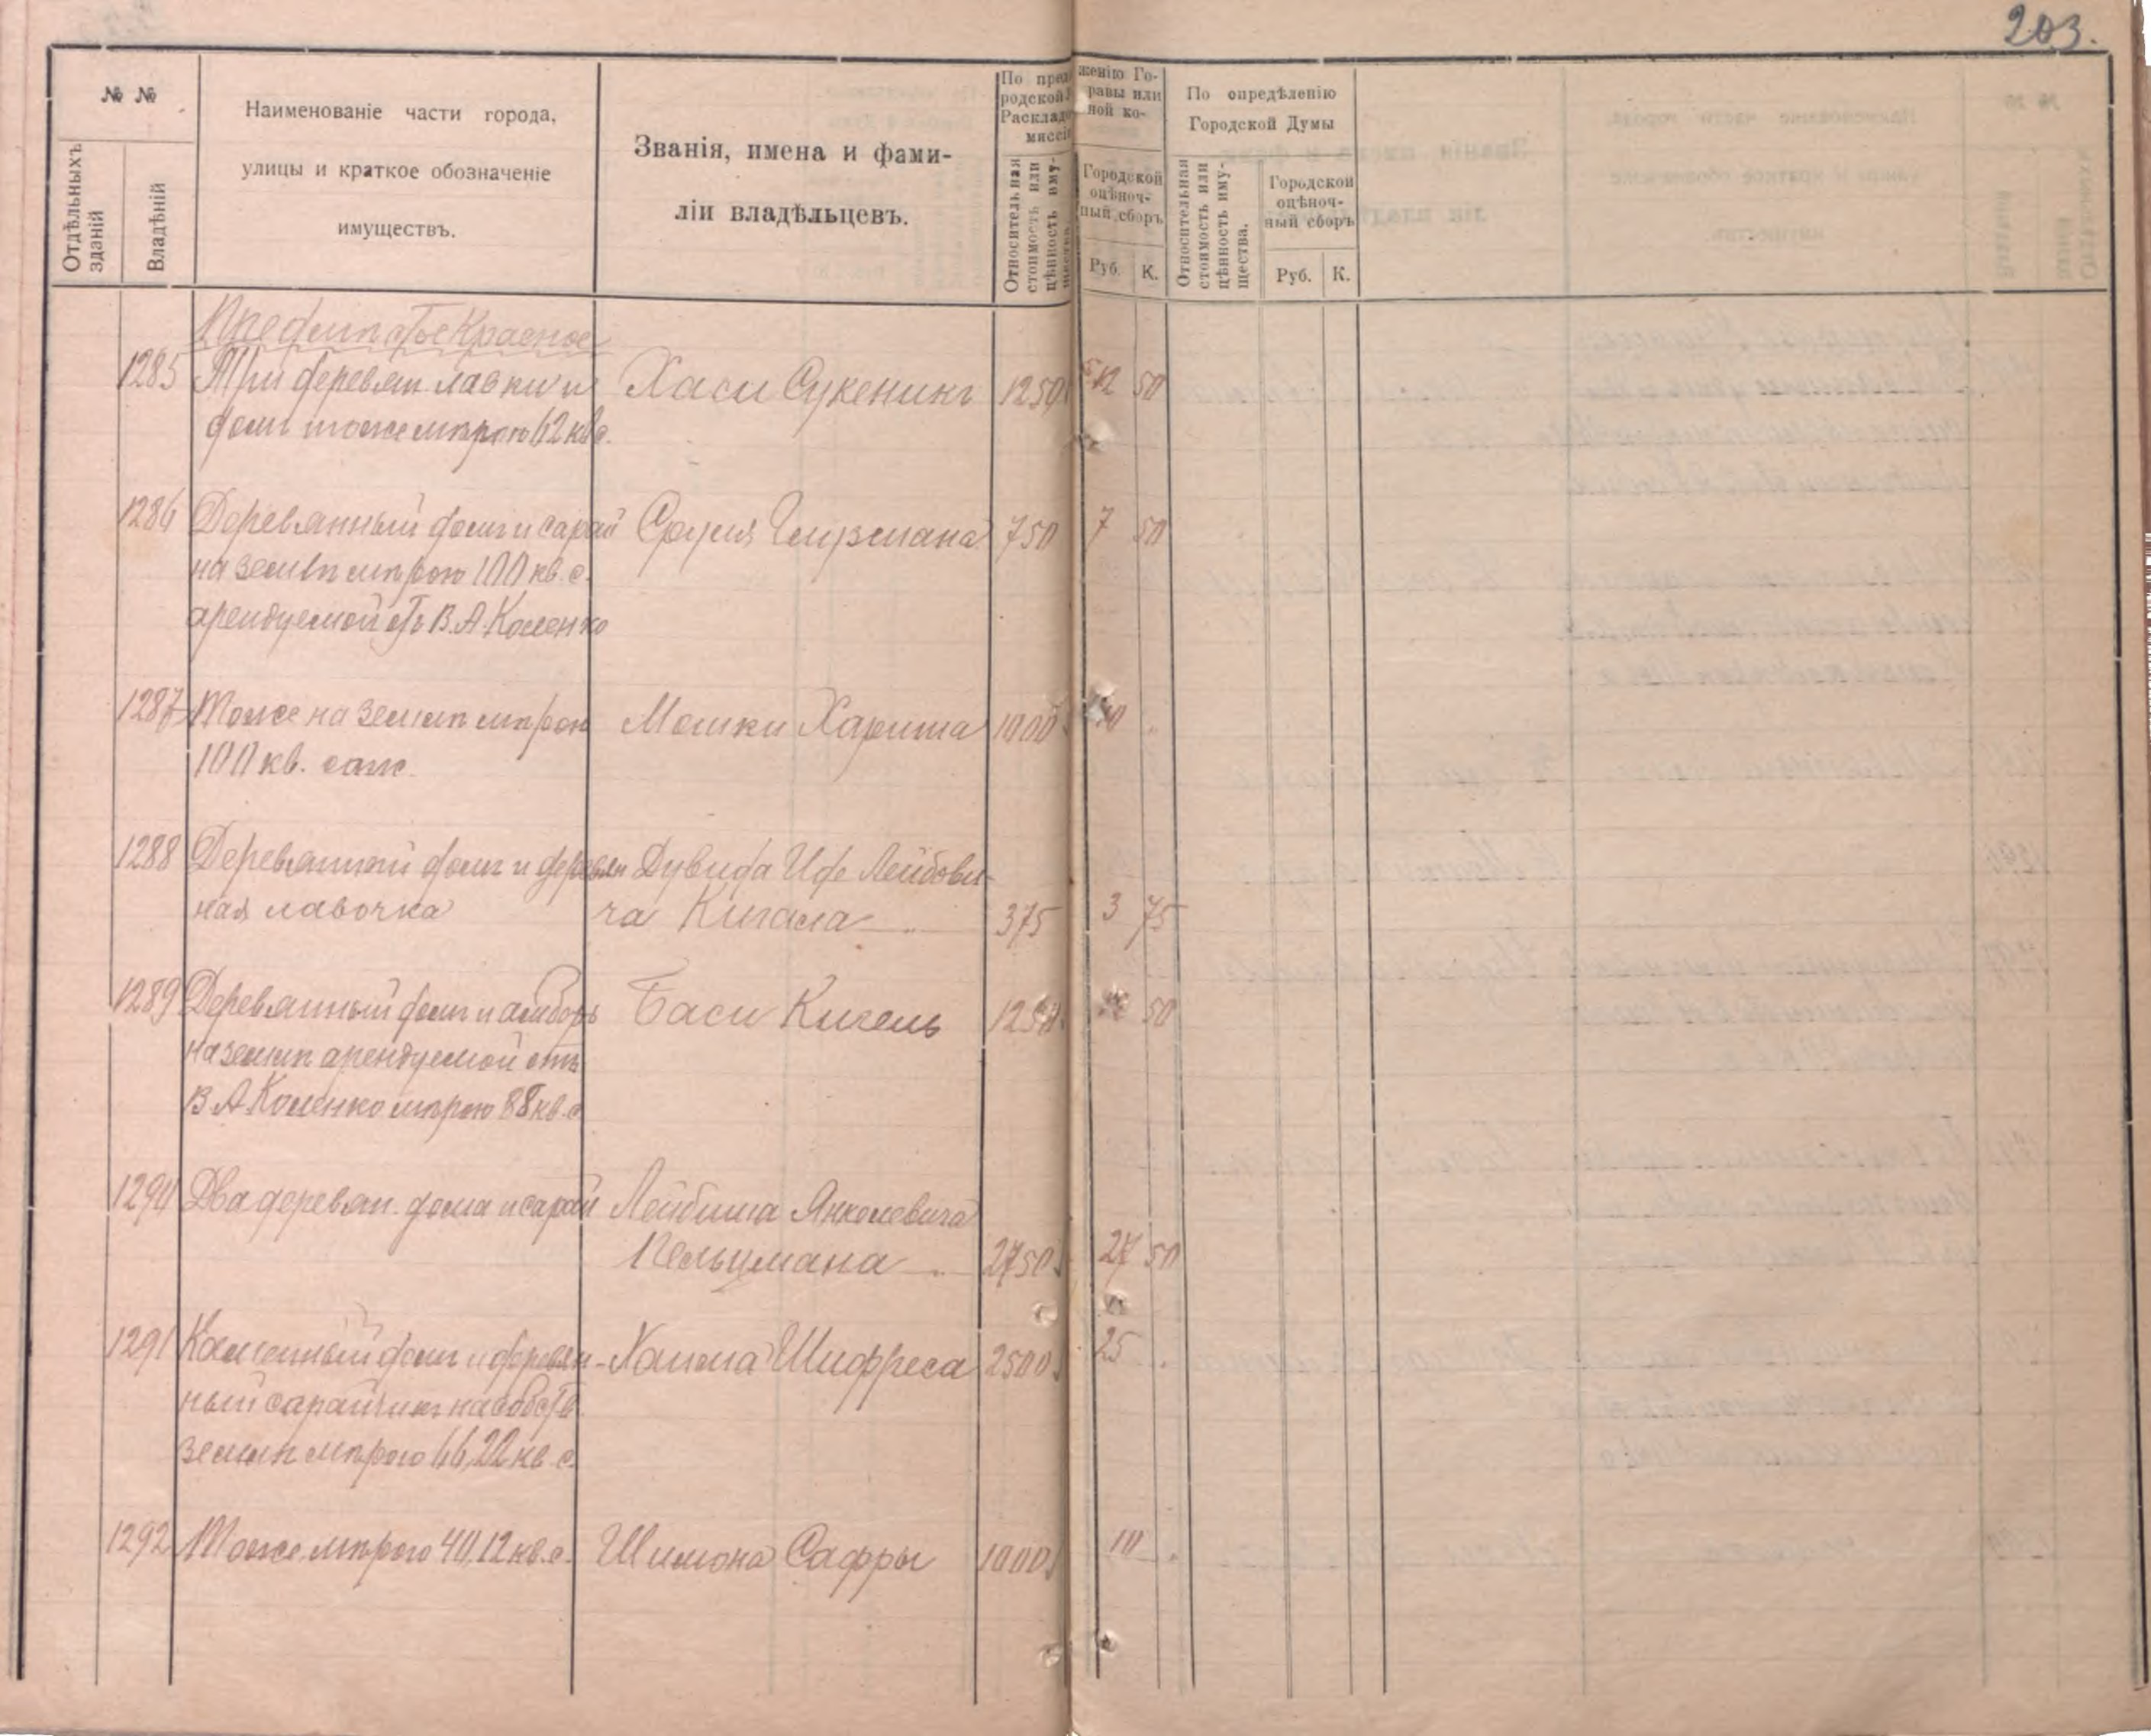 203.
№ №
Отдѣльныхъ зданій
Владѣній
Наименованіе части города,
улицы и краткое обозначеніе
имуществъ.
Званія, имена и фами-
ліи владѣльцевъ.
По пред
женію Го-
родской
равы или
Расклад
ной ко-
миссі
Относительная
стоимость или
цѣнность иму-
Городской
оцѣноч-
ный сборъ
Руб. К.
По опредѣленію
Городской Думы
Относительная
стоимость или
цѣнность иму-
щества.
Городской
оцѣноч-
ный сборъ
Руб. К.
Предмѣстье Красное
1285 Три деревян. лавки и Хаси Сукеникъ 1250 12 50
домъ тоже мѣрою 62 кв с.
1286 Деревянный домъ и сарай Сруля Гмузмана 750 7 50
на землѣ мѣрою 100 кв. с.
арендуемой отъ В. А. Коленко
1287 Тоже на землѣ мѣрою Мошки Харита 1000 10 "
100 кв. саж.
1288 Деревянный домъ и деревян Дувида Иде Лейбови-
ная лавочка ча Кигела 375 3 75
1289 Деревянный домъ и амбаръ Баси Кигель 1250 50
на землѣ арендуемой отъ
В А Коленко мѣрою 88 кв. с
1290 Два деревян. дома и сарай Лейбиша Янкелевича
Пельцмана 2750 27 50
1291 Каменный домъ и деревян- Хаима Шифреса 2500 25 "
ный сарайчикъ на собств.
землѣ мѣрою 66,22 кв. с.
1292 Тоже мѣрою 40,12 кв. с. Шимона Сафры 1000 10 "